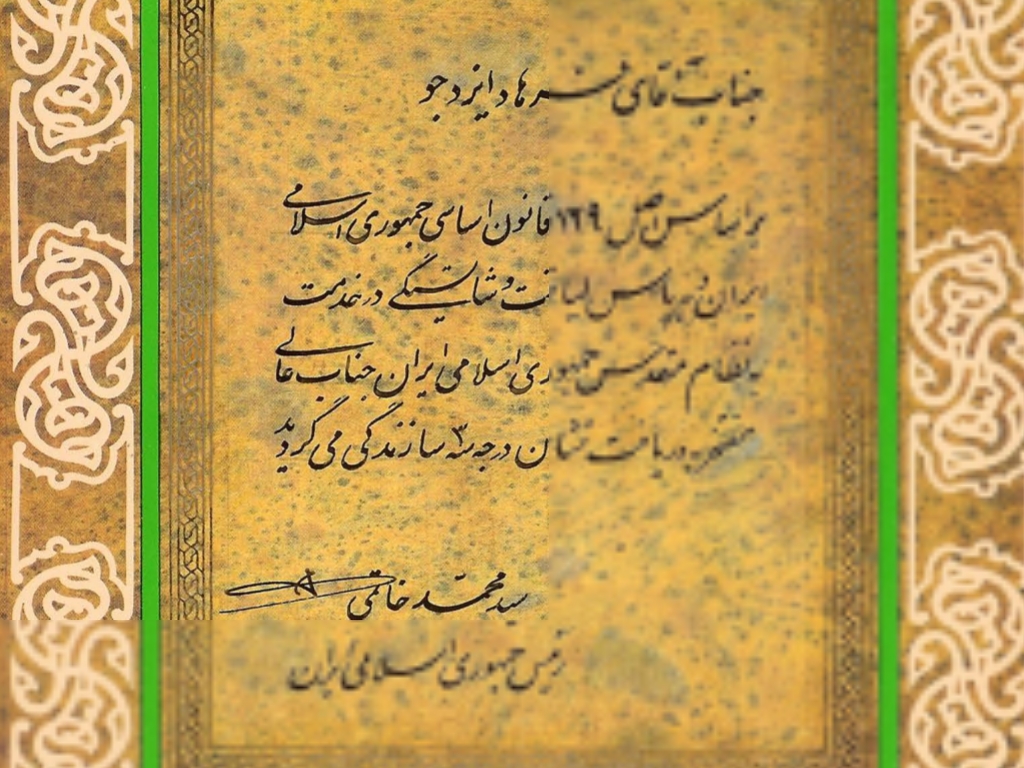 جناب آقای فرهاد ایزدجو
بر اساس اصل ۱۲۹ قانون اساسی جمهوری اسلامی
ایران و به پاس لیاقت و شایستگی در خدمت
به نظام مقدس جمهوری اسلامی ایران جناب عالی
مفتخر به دریافت نشان درجه سه سازندگی می گردید
سید محمد خاتمی
رئیس جمهوری اسلامی ایران